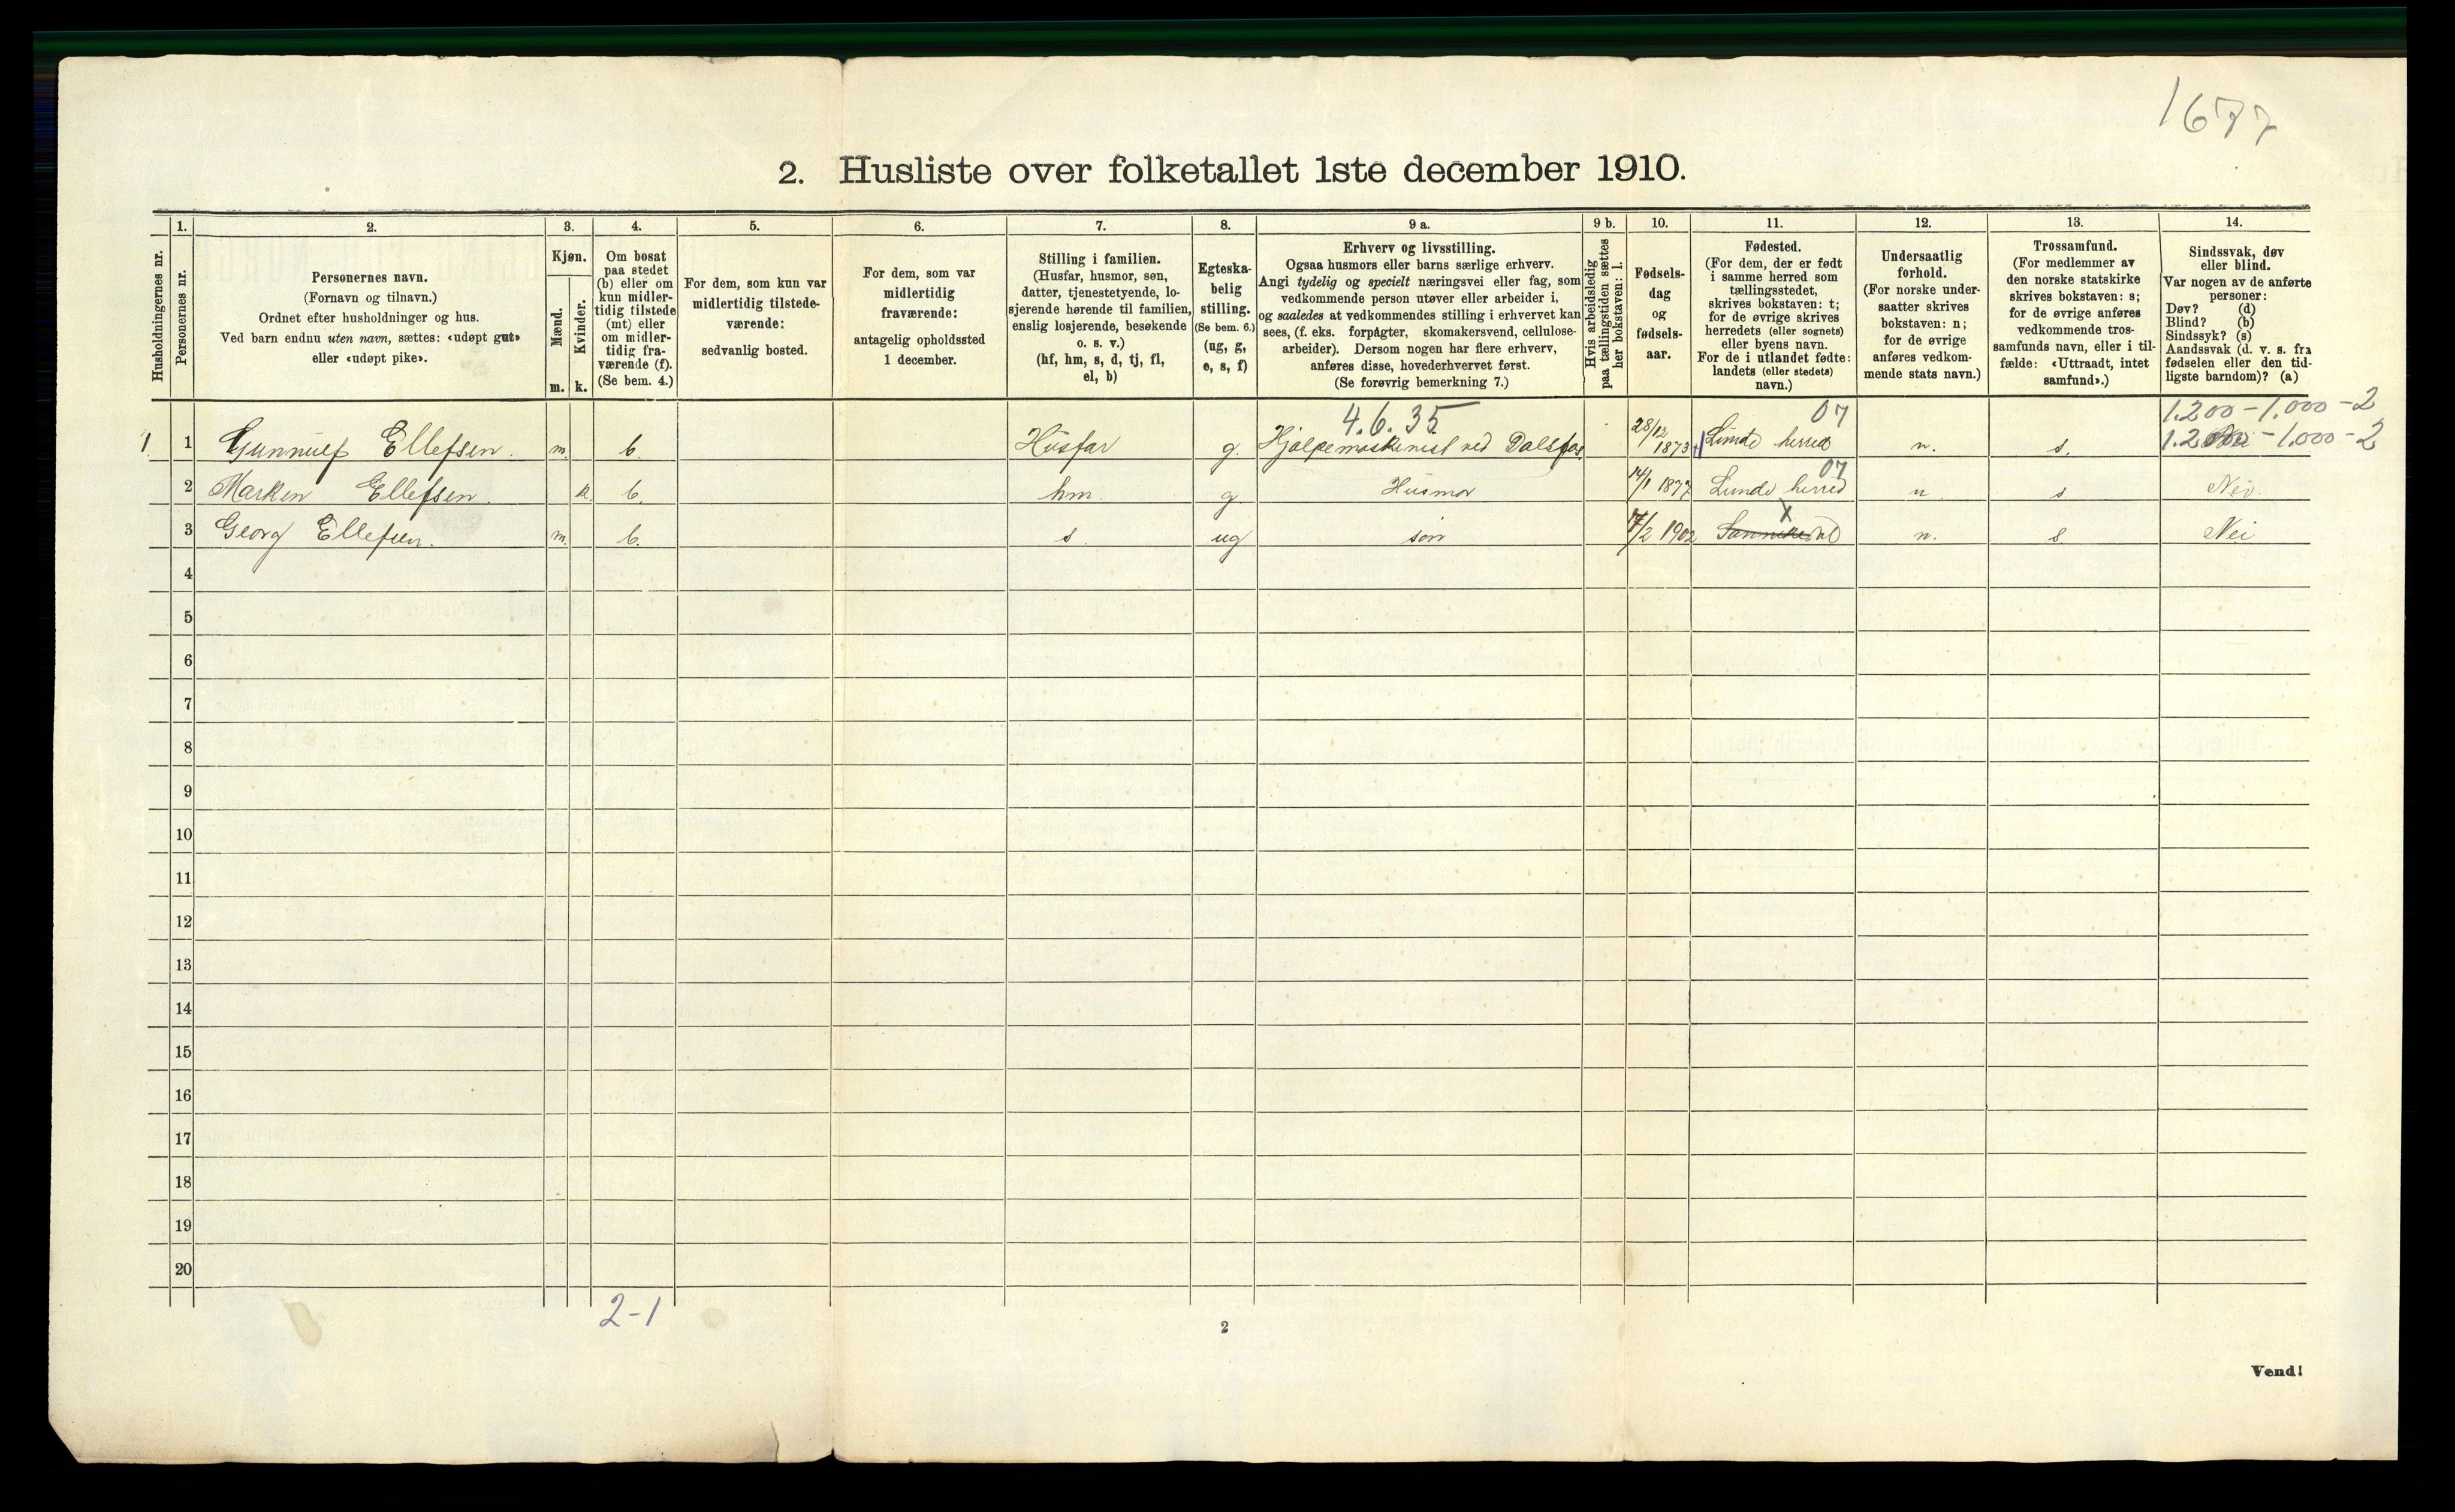 1677
2. Husliste over folketallet 1ste december 1910.
Husholdningernes nr.
1.
Personernes nr.
2.
Personernes navn.
(Fornavn og tilnavn.)
Ordnet efter husholdninger og hus.
Ved barn endnu uten navn, sættes: «udøpt gut»
eller «udøpt pike».
3.
Kjøn.
Mænd.
Kvinder.
m. k.
4.
Om bosat
paa stedet
(b) eller om
kun midler-
tidig tilstede
(mt) eller
om midler-
tidig fra-
værende (f).
(Se bem. 4.)
5.
For dem, som kun var
midlertidig tilstede-
værende:
sedvanlig bosted.
6.
For dem, som var
midlertidig
fraværende:
antagelig opholdssted
1 december.
7.
Stilling i familien.
(Husfar, husmor, søn,
datter, tjenestetyende, lo-
sjerende hørende til familien,
enslig losjerende, besøkende
o. s. v.)
(hf, hm, s, d, tj, fl,
el, b)
8.
Egteska-
belig
stilling.
(Se bem. 6.)
(ug, g,
e, s, f)
9 a.
Erhverv og livsstilling.
Ogsaa husmors eller barns særlige erhverv.
Angi tydelig og specielt næringsvei eller fag, som
vedkommende person utøver eller arbeider i,
og saaledes at vedkommendes stilling i erhvervet kan
sees, (f. eks. forpagter, skomakersvend, cellulose-
arbeider). Dersom nogen har flere erhverv,
anføres disse, hovederhvervet først.
(Se forøvrig bemerkning 7.)
9 b.
Hvis arbeidsledig
paa tællingstiden sættes
her bokstaven: l.
10.
Fødsels-
dag
og
fødsels-
aar.
11.
Fødested.
(For dem, der er født
i samme herred som
tællingsstedet,
skrives bokstaven: t;
for de øvrige skrives
herredets (eller sognets)
eller byens navn.
For de i utlandet fødte:
landets (eller stedets)
navn.)
12.
Undersaatlig
forhold.
(For norske under-
saatter skrives
bokstaven: n;
for de øvrige
anføres vedkom-
mende stats navn.)
13.
Trossamfund.
(For medlemmer av
den norske statskirke
skrives bokstaven: s;
for de øvrige anføres
vedkommende tros-
samfunds navn, eller i til-
fælde: «Uttraadt, intet
samfund».)
14.
Sindssvak, døv
eller blind.
Var nogen av de anførte
personer:
Døv? (d)
Blind? (b)
Sindssyk? (s)
Aandssvak (d. v. s. fra
fødselen eller den tid-
ligste barndom)? (a)
4.6.35 07 1.200-1.000-2
1 1 Gunnulf Ellefsen. m. b. Husfar g. Hjælpemaskinist ved Dalsfos 28/12 1873 Lunde herred n. s. 1.200-1.000-2
07
2 Marken Ellefsen. k. b. hm. g. Husmor 14/1 1877 Lunde herred n s Nei.
x
3 Georg Ellefsen. m. b. s. ug søn /2 1902 Sannikedal n. s Nei
4
5
6
7
8
9
10
11
12
13
14
15
16
17
18
19
20
2-1
2
Vend!